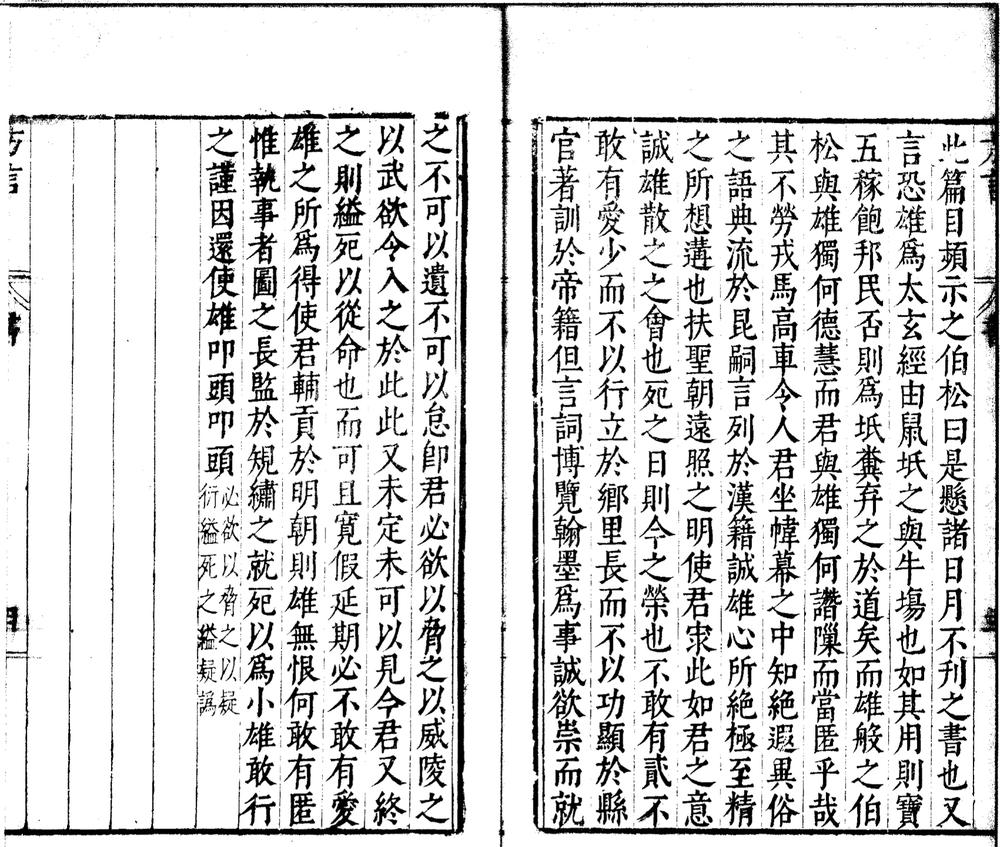 此篇目頻示之伯松曰是懸諸日月不刊之書也又
言恐雄為太玄經由鼠坻之與牛場也如其用則寶
五稼飽邦民否則為坻糞弃之於道矣而雄般之伯
松與雄獨何德慧而君與雄獨何譖隟而當匿乎哉
其不勞戎馬高車令人君坐幃幕之中知絶遐異俗
之語典流於昆嗣言列於漢籍誠雄心所絶極至精
之所想遘也扶聖朝遠照之明使君求此如君之意
誠雄散之之會也死之日則今之榮也不敢有貳不
敢有愛少而不以行立於鄉里長而不以功顯於縣
官著訓於帝籍但言詞博覽翰墨為事誠欲崇而就
之不可以遺不可以怠卽君必欲以脅之以威陵之
以武欲令入之於此此又未定未可以見今君又終
之則縊死以從命也而可且寛假延期必不敢有愛
雄之所為得使君輔貢於明朝則雄無恨何敢有匿
惟執事者圖之長監於規繡之就死以為小雄敢行
之謹因還使雄叩頭叩頭
必欲以脅之以疑
衍縊死之縊疑譌
方言